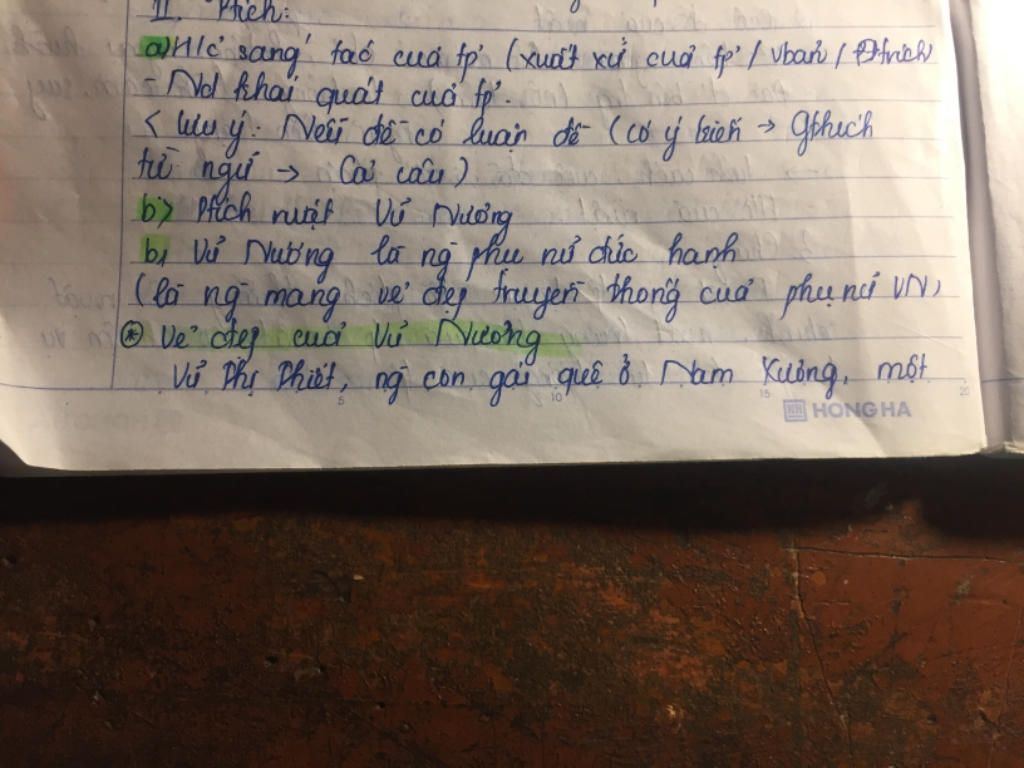 II. Ptích:
a) H/c sáng tác của tp (xuất xứ của tp / vbản / Đtrích
- Nd khái quát của tp.
< lưu ý: Nếu đề có luận đề (có ý kiến → Gthích
từ ngữ → Cả câu)
b) Ptích nvật Vũ Nương
b1 Vũ Nương là ng phụ nữ đức hạnh
(là ng mang vẻ đẹp truyền thống của phụ nữ VN)
* Vẻ đẹp của Vũ Nương
Vũ Thị Thiết, ng con gái quê ở Nam Xương, một
5 10 15 20
HH HONG HA